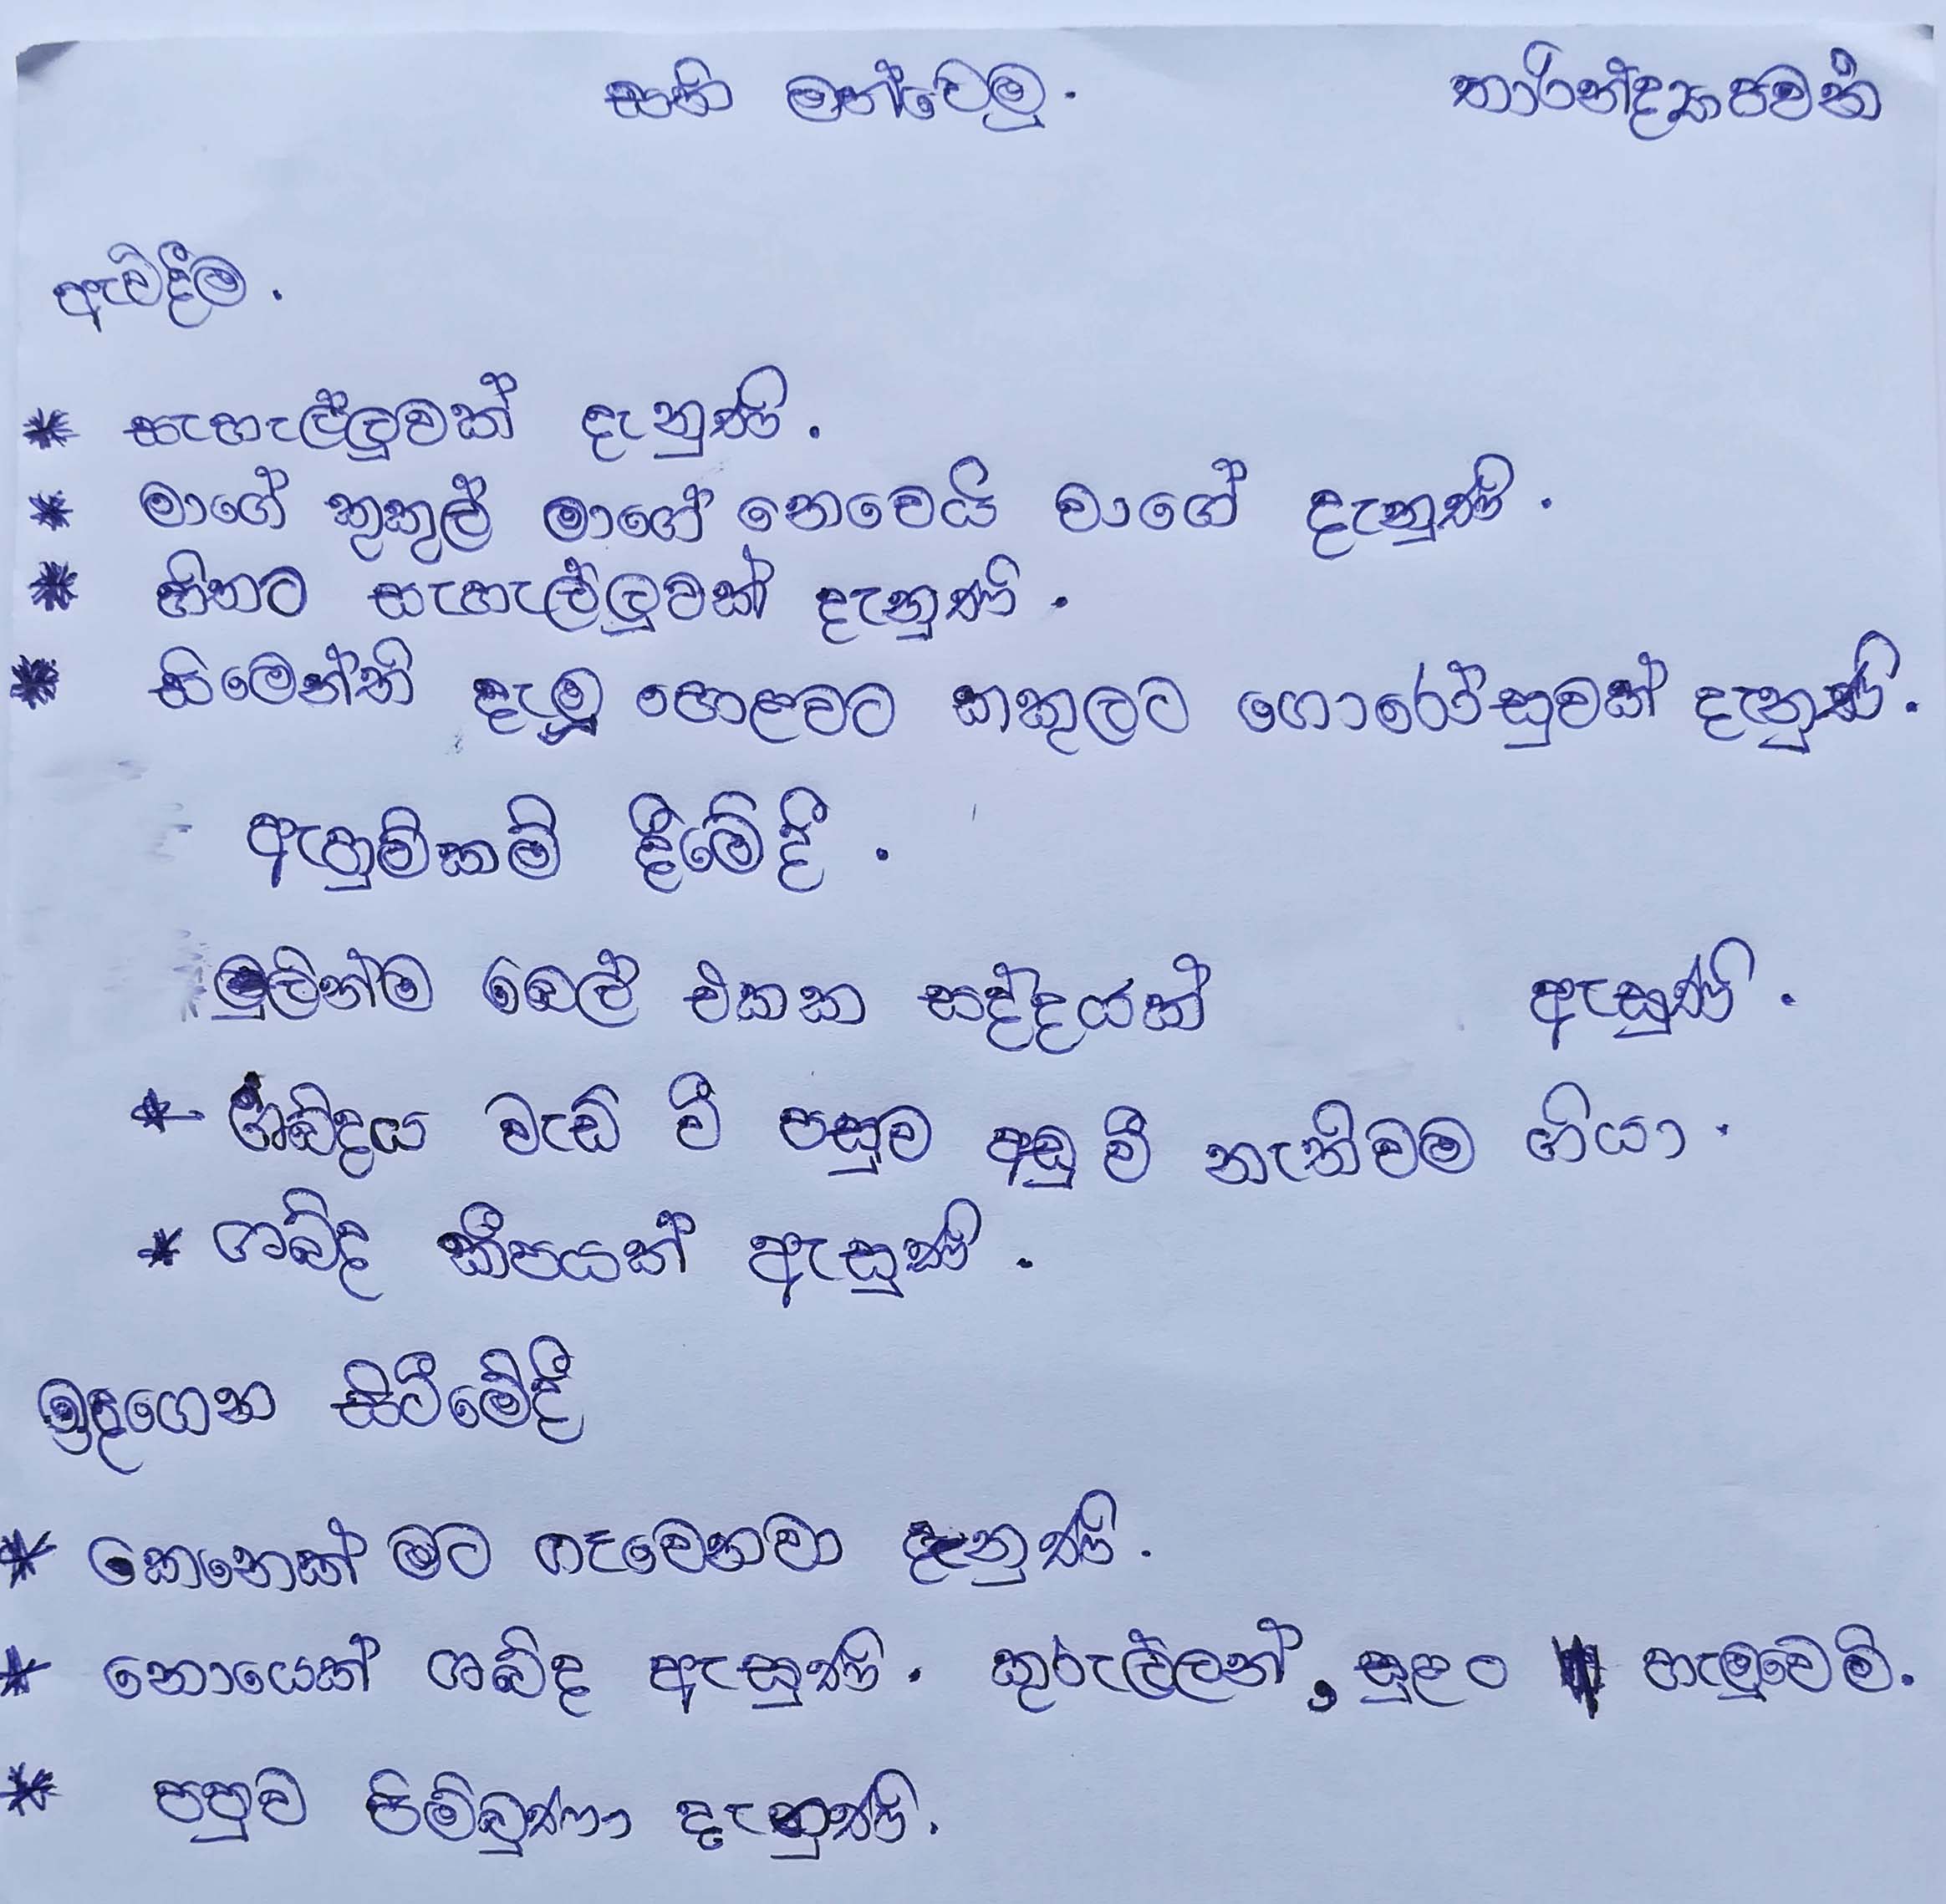 සති මත්වෙමු. තාරින්ද්‍ර
ඇවිදීම.
* සැහැල්ලුවක් දැනුණි.
* මාගේ කකුල් මාගේ නෙවෙයි වාගේ දැනුණි.
* හිතට සැහැල්ලුවක් දැනුණි.
* සිමෙන්ති දැමූ පොළවට කකුලට ගොරෝසුවක් දැනුණි.
ඇහුම්කම් දීමේදී.
මුලින්ම බෙල් එකක සද්දයක් ඇසුණි.
* ශබ්දය වැඩි වී පසුව අඩු වී නැතිවම ගියා.
* ශබ්ද කීපයක් ඇසුණි.
ඉදගෙන සිටීමේදී
* කෙනෙක් මට ගෑවෙනවා දැනුණි.
* නොයෙක් ශබ්ද ඇසුණි. කුරුල්ලන්, සුළං හැමුවෙමි.
* පපුව පිම්බුණා දැනුණි.